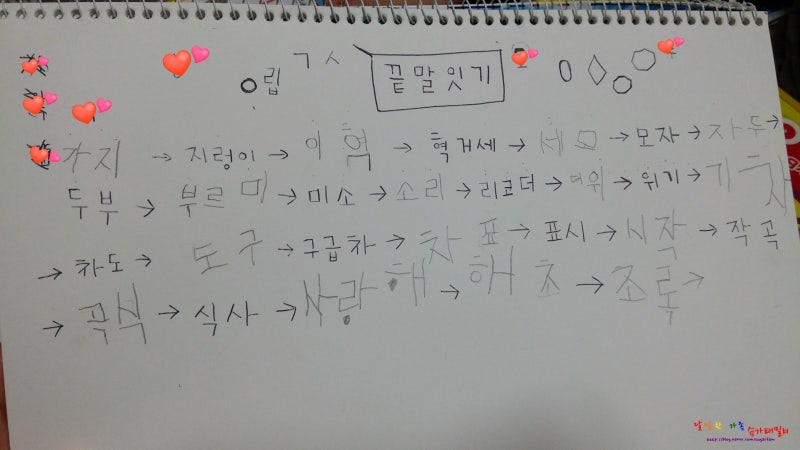 ㄱ ㅅ
립
끝말잇기
가지 → 지렁이 → 이혁 → 혁거세 → 세모 → 모자 → 자두 →
두부 → 부르미 → 미소 → 소리 → 리코더 → 더위 → 위기 → 기차
→ 차도 → 도구 → 구급차 → 차표 → 표시 → 시작 → 작곡
→ 곡식 → 식사 → 사랑해 → 해초 → 초록 →
달달한 가족 슈가패밀리